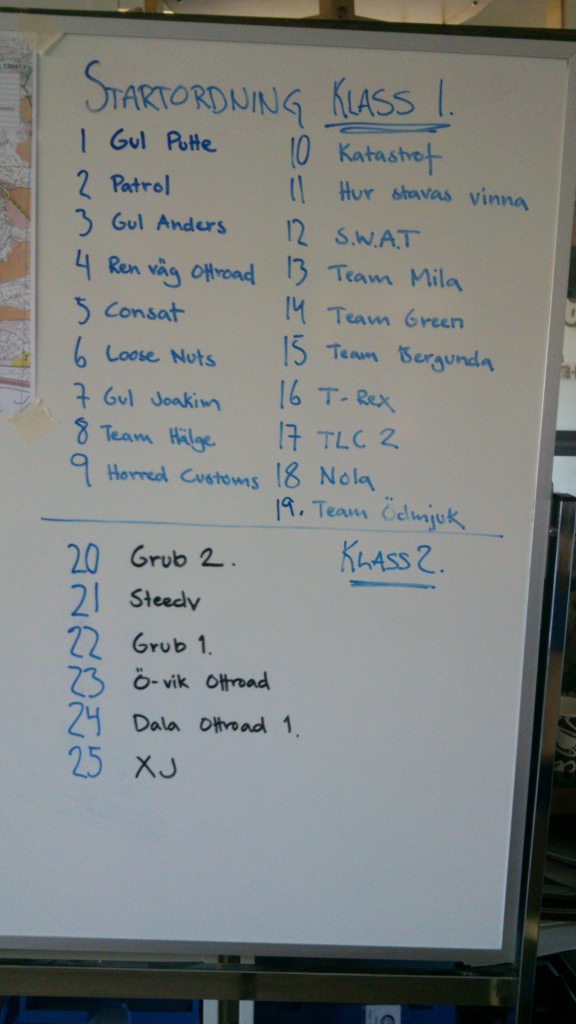 STARTORDNING KLASS 1.
1 Gul Putte
2 Patrol
3 Gul Anders
4 Ren väg Offroad
5 Consat
6 Loose Nuts
7 Gul Joakim
8 Team Hälge
9 Horred Customs
10 Katastrof
11 Hur stavas vinna
12 S.W.A.T
13 Team Mila
14 Team Green
15 Team Bergunda
16 T-Rex
17 TLC 2
18 Nola
19. Team Ödmjuk
KLASS 2.
20 Grub 2.
21 Steedv
22 Grub 1.
23 Ö-vik Offroad
24 Dala Offroad 1.
25 XJ